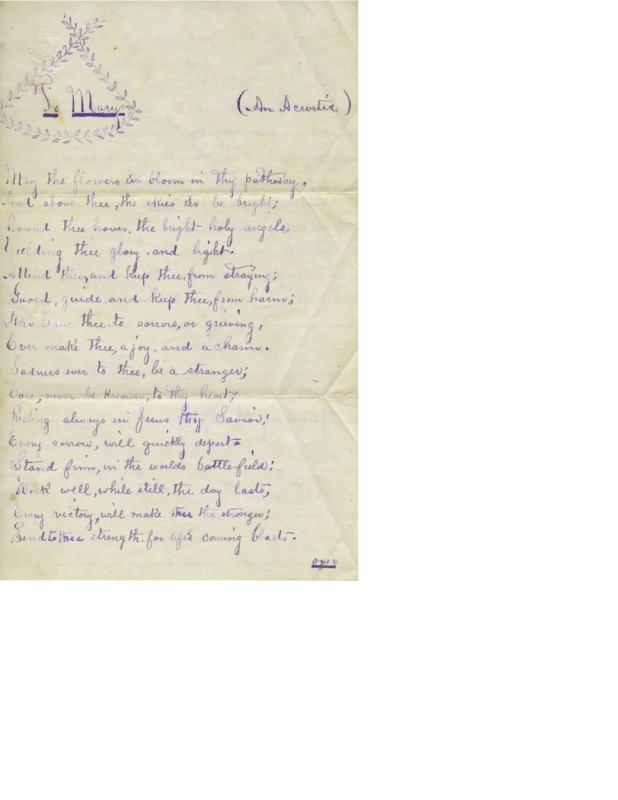 To Mary
(An Acrostic)
May the flowers e'er bloom in thy pathway,
And above thee, the skies e'er be bright;
Round thee hover, the bright holy angels,
Yielding thee glory, and light.
Attend thee, and keep thee, from straying;
Guard, guide, and keep thee, from harm;
Ne'er leave thee to sorrow, or grieving,
Ever make thee, a joy, and a charm.
Sadness ever to thee, be a stranger;
Care, never be known, to thy heart;
Resting always in Jesus thy Savior;
Every sorrow, will quickly depart.
Stand firm, in the worlds battle-field;
Work well, while still, the day lasts;
Every victory, will make thee the stronger;
Lend to thee strength, for life's coming blasts.
over